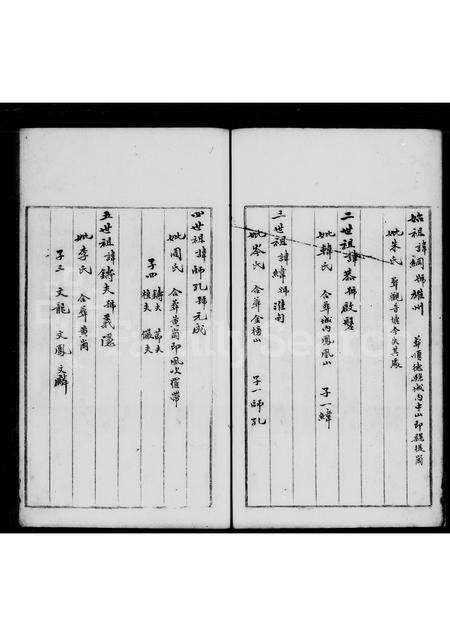 始祖諱綱號雄州 葬價德縣城內中山即觀從崗
妣朱氏 葬觀音壩今失其處
二世祖諱恭號啟賢
妣韓氏 合葬城內鳳凰山 子一緯
三世祖諱緯號淮南
妣岑氏 合葬金榜山 子一師孔
四世祖諱師孔號元成
妣周氏 合葬黃崗即風吹羅帶
子四 鑄夫 范夫
植夫 儼夫
五世祖諱鑄夫號義濂
妣李氏 合葬黃崗
子三 文龍 文鳳 文麟